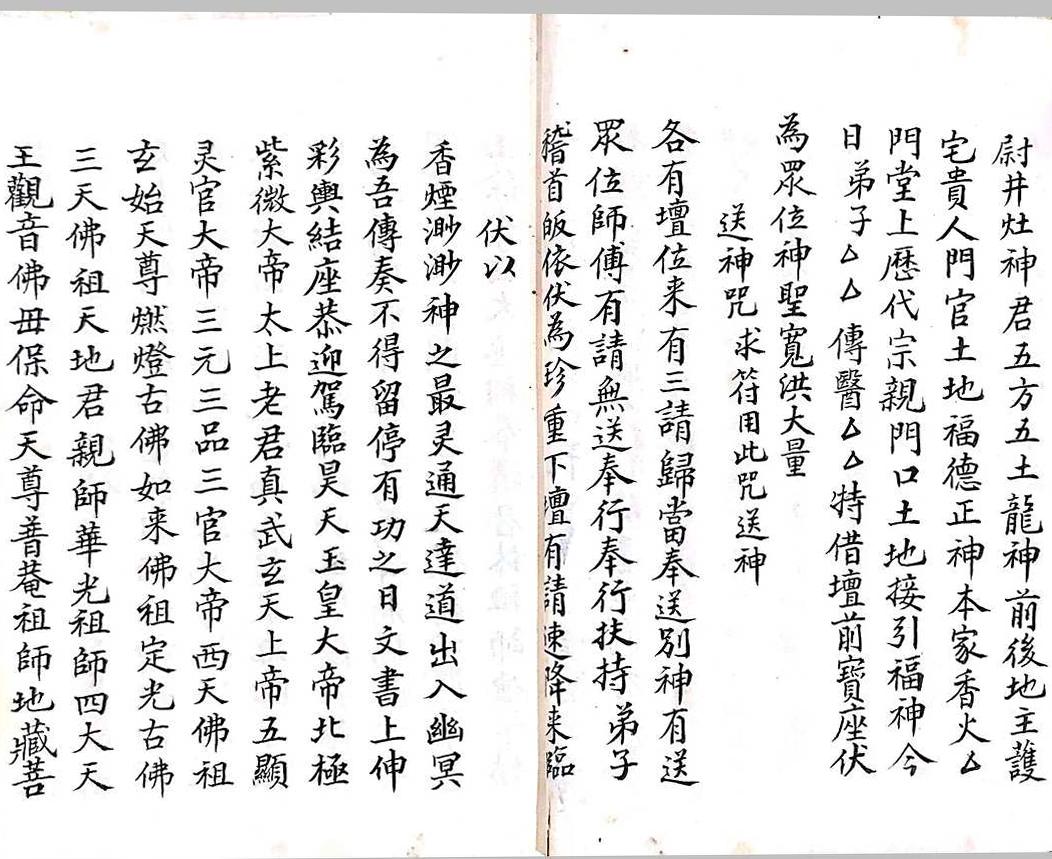 尉井灶神君五方五土龍神前後地主護
宅貴人門官土地福德正神本家香火△
門堂上歷代宗親門口土地接引福神今
日弟子△△傳醫△△特借壇前寶座伏
為眾位神聖寬洪大量
送神咒求符用此咒送神
各有壇位来有三請歸當奉送別神有送
眾位師傅有請無送奉行奉行扶持弟子
稽首皈依伏為珍重下壇有請速降来臨
伏以
香煙渺渺神之最灵通天達道出入幽冥
為吾傳奏不得留停有功之日文書上伸
彩輿結座恭迎駕臨昊天玉皇大帝北極
紫微大帝太上老君真武玄天上帝五顯
灵官大帝三元三品三官大帝西天佛祖
玄始天尊燃燈古佛如来佛祖定光古佛
三天佛祖天地君親師華光祖師四大天
王觀音佛母保命天尊普菴祖師地藏菩